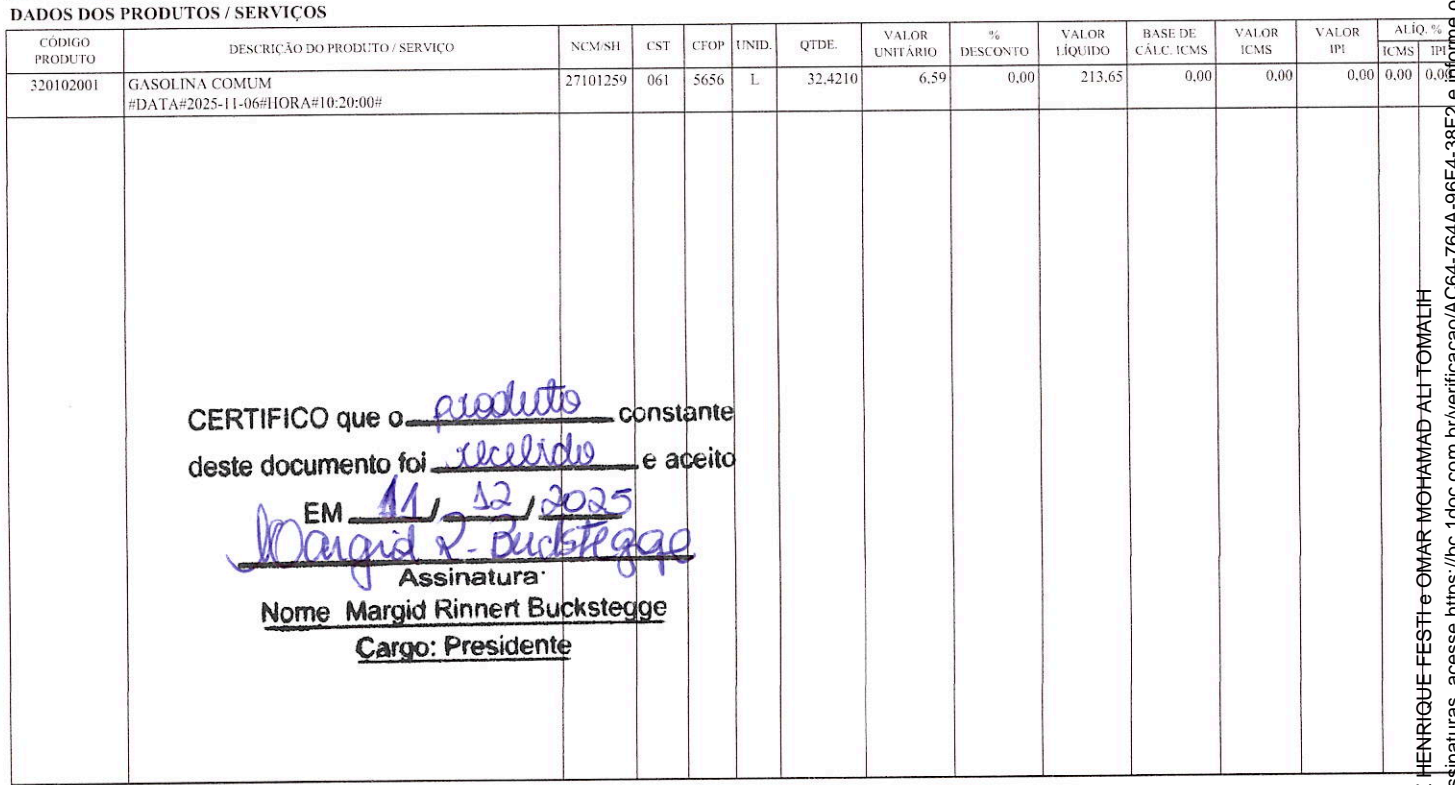 DADOS DOS PRODUTOS / SERVIÇOS
CÓDIGO PRODUTO DESCRIÇÃO DO PRODUTO / SERVIÇO NCM/SH CST CFOP UNID. QTDE. VALOR UNITÁRIO % DESCONTO VALOR LÍQUIDO BASE DE CÁLC. ICMS VALOR ICMS VALOR IPI ALÍQ. % ICMS IPI
320102001 GASOLINA COMUM 27101259 061 5656 L 32,4210 6,59 0,00 213,65 0,00 0,00 0,00 0,00 0,00
#DATA#2025-11-06#HORA#10:20:00#
CERTIFICO que o produto constante
deste documento foi recebido e aceito
EM 11 / 12 / 2025
Margid R. Buckstegge
Assinatura
Nome Margid Rinnert Buckstegge
Cargo: Presidente
HENRIQUE FESTI e OMAR MOHAMAD ALI TOMALIH
ssinaturas, acesse https://bc.1doc.com.br/verificacao/AC64-764A-96F4-38F2 e informe o